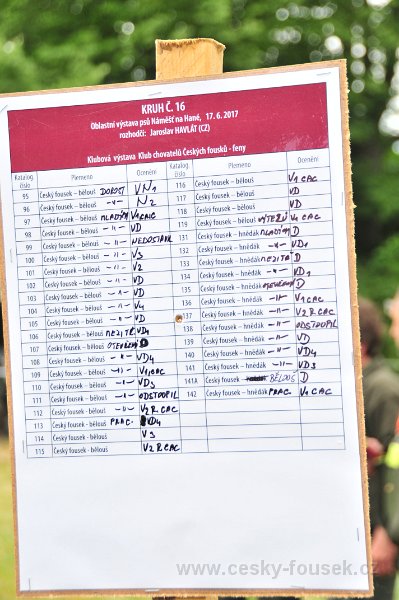 KRUH Č. 16
Oblastní výstava psů Náměšť na Hané, 17. 6. 2017
rozhodčí: Jaroslav HAVLÁT (CZ)
Klubová výstava Klub chovatelů Českých fousků - feny
Katalog. číslo Plemeno Ocenění
95 Český fousek – bělouš DOROST VN1
96 Český fousek – bělouš –"– N2
97 Český fousek – bělouš MLADÝCH V1 CAC
98 Český fousek – bělouš –"– VD
99 Český fousek – bělouš –"– NEDOSTAV.
100 Český fousek – bělouš –"– V3
101 Český fousek – bělouš –"– V2
102 Český fousek – bělouš –"– VD
103 Český fousek – bělouš –"– VD
104 Český fousek – bělouš –"– V4
105 Český fousek – bělouš –"– VD
106 Český fousek – bělouš MEZITŘ. VD1
107 Český fousek – bělouš OTEVŘENÁ
108 Český fousek – bělouš –"– VD4
109 Český fousek – bělouš –"– V1 CAC
110 Český fousek – bělouš –"– VD3
111 Český fousek – bělouš –"– ODSTOUPIL
112 Český fousek – bělouš –"– V2 R.CAC
113 Český fousek - bělouš PRAC. VD4
114 Český fousek - bělouš V3
115 Český fousek - bělouš V2 R CAC
Plemeno Ocenění
116 Český fousek – bělouš V1 CAC
117 Český fousek – bělouš VD
118 Český fousek – bělouš VD
119 Český fousek – bělouš VÍTĚZŮ V1 CAC
131 Český fousek – hnědák MLADÝCH D
132 Český fousek – hnědák –"– VD1
133 Český fousek – hnědák MEZITŘ. D
134 Český fousek – hnědák –"– VD1
135 Český fousek – hnědák OTEVŘENÁ D
136 Český fousek – hnědák –"– V1 CAC
137 Český fousek – hnědák –"– V2 R CAC
138 Český fousek – hnědák –"– ODSTOUPIL
139 Český fousek – hnědák –"– VD
140 Český fousek – hnědák –"– VD4
141 Český fousek – hnědák –"– VD3
141A Český fousek BĚLOUŠ D
142 Český fousek – hnědák PRAC. V1 CAC
www.cesky-fousek.cz